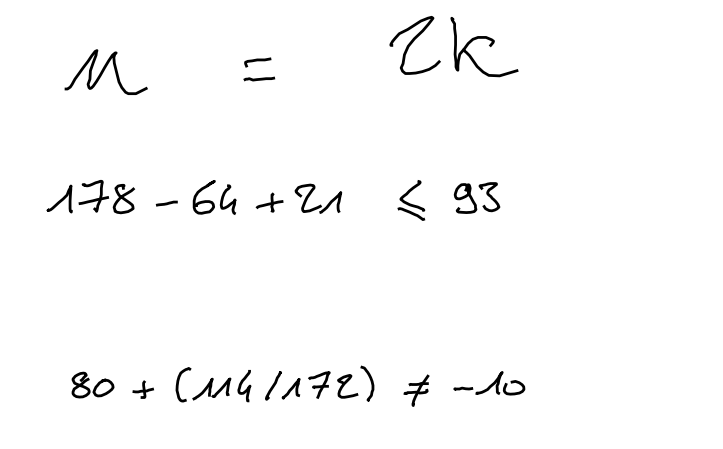 n = 2k
178 - 64 + 21 ⩽ 93
80 + (114/172) ≠ -10